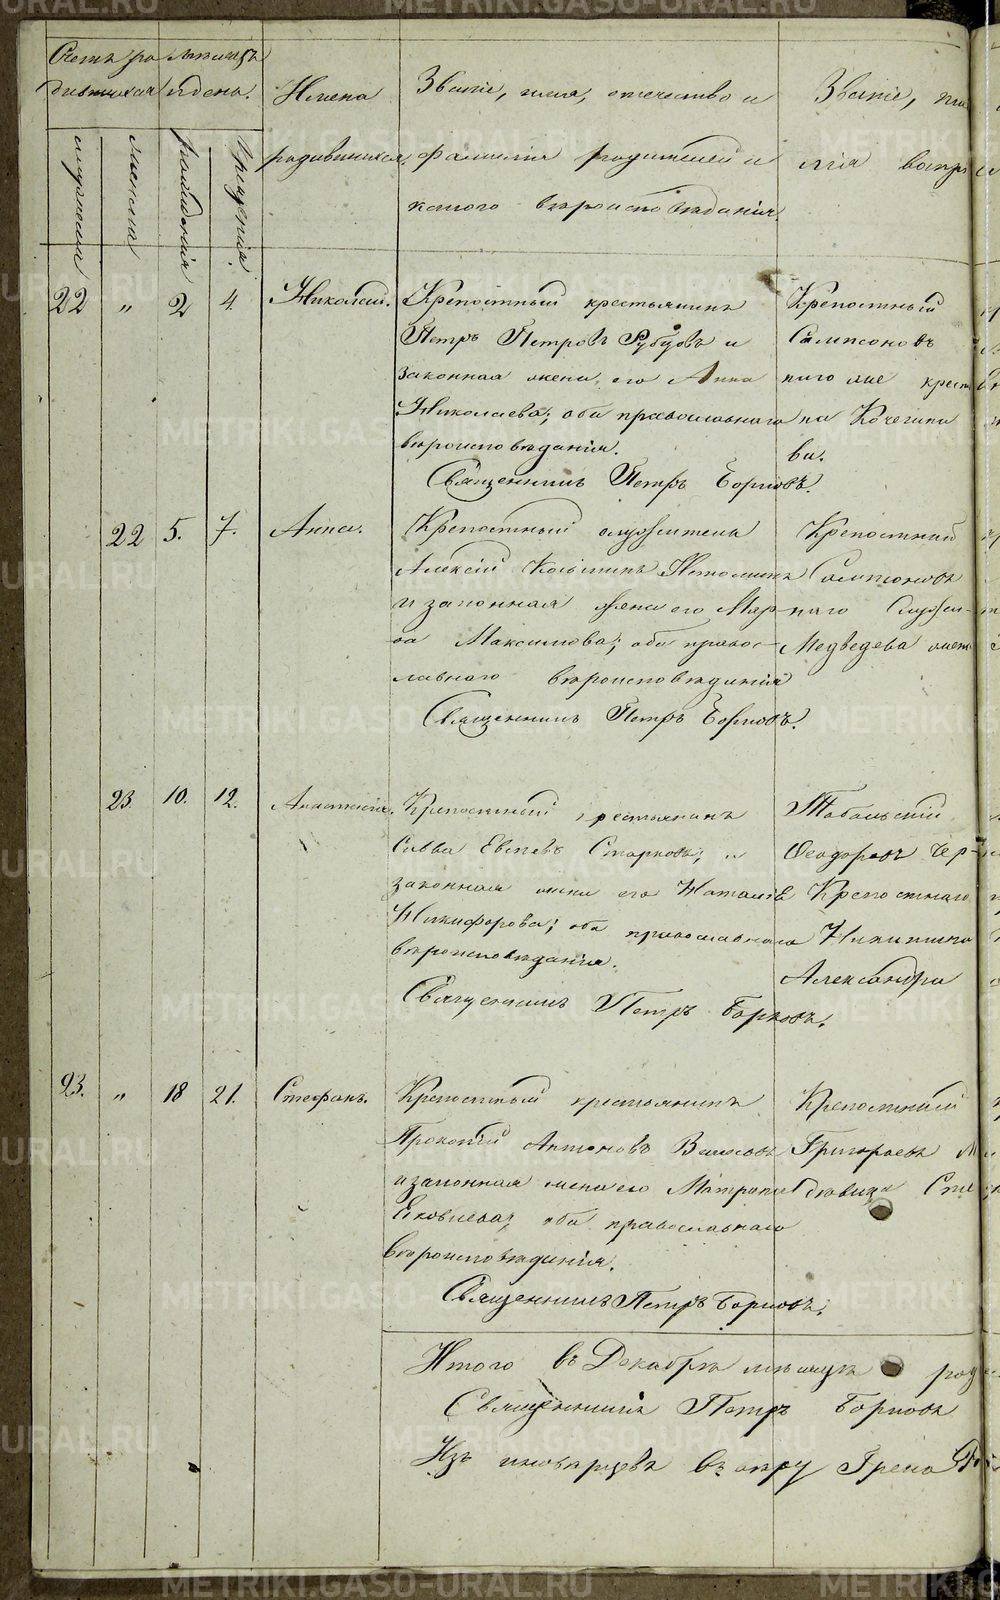 Счетъ ро мѣсяцъ
дившихся и день.
мужеска
женска
рожденія
крещенія.
Имена
родившихся,
Званіе, имя, отечество и
фамилія родителей и
какого вѣроисповѣданія.
Званіе,
лія воспрі
22 „ 2 4. Николай.
Крепостный крестьянинъ
Петръ Петровъ Рубцовъ и
законная жена его Анна
Николаева; оба православнаго
вѣроисповѣданія.
Священникъ Петръ Борковъ.
Крепостный
Сампсоновъ
наго же крест
на Кочегина
ва.
22 5. 7. Анна.
Крепостный служитель
Алексѣй Козьминъ
и законная жена его Мар-
ѳа Максимова; оба правос-
лавнаго вѣроисповѣданія
Священникъ Петръ Борковъ.
Крепостный
Сампсоновъ
наго служи-
Медведева жен
23 10. 12. Анастасія.
Крепостный крестьянинъ
Савва Евсеевъ Старковъ; и
законная жена его Наталія
Никифорова; оба православнаго
вѣроисповѣданія.
Священникъ Петръ Борковъ.
Тобольскій
Ѳеодоровъ Чер-
Крепостнаго
Никитина
Александра
23. „ 18 21. Стефанъ.
Крепостный крестьянинъ
Прокопій Антоновъ Власовъ
и законная жена его
Яковлева; оба православнаго
вѣроисповѣданія.
Священникъ Петръ Борковъ.
Крепостный
Григорьевъ
девица Сте
Итого въ Декабрѣ мѣсяцѣ род
Священникъ Петръ Борковъ
Изъ иноверцевъ въ веру Греко
METRIKI.GASO-URAL.RU